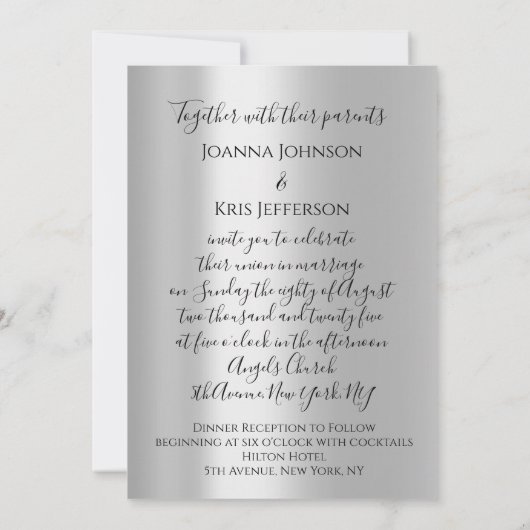 Together with their parents
Joanna Johnson
&
Kris Jefferson
invite you to celebrate
their union in marriage
on Sunday the eighty of August
two thousand and twenty five
at five o'clock in the afternoon
Angels Church
5th Avenue, New York, NY
Dinner Reception to Follow
beginning at six o'clock with cocktails
Hilton Hotel
5th Avenue, New York, NY